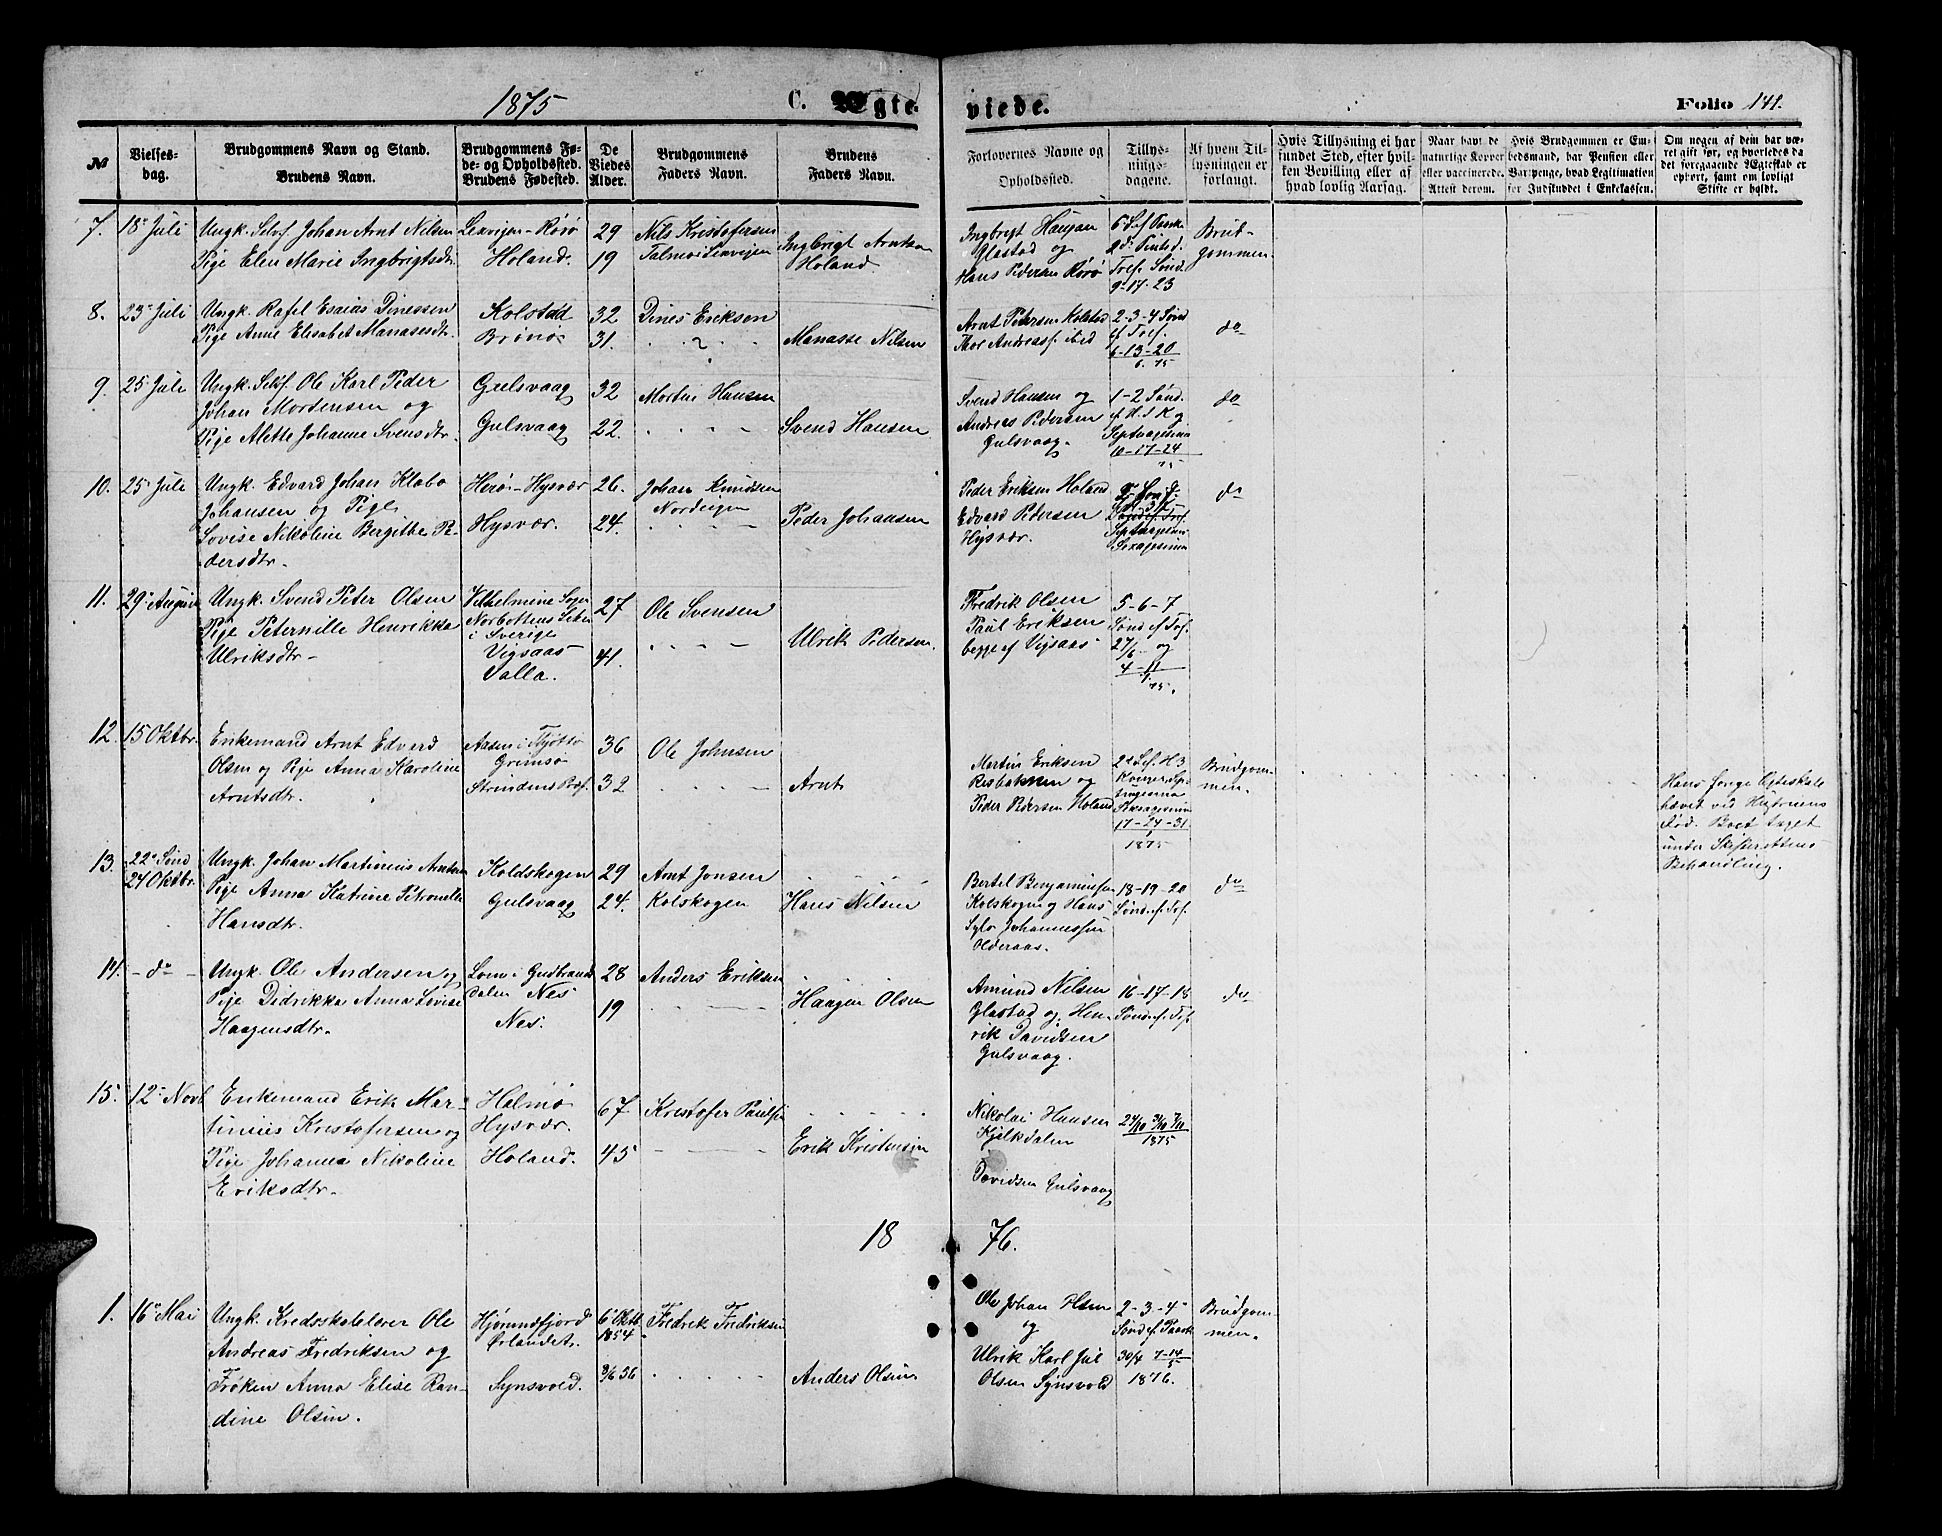 1875
C. Ægte-
viede.
Folio 141.
№
Vielses-
dag.
Brudgommens Navn og Stand.
Brudens Navn.
Brudgommens Fø-
de- og Opholdssted.
Brudens Fødested.
De
Viedes
Alder.
Brudgommens
Faders Navn.
Brudens
Faders Navn.
Forlovernes Navne og
Opholdssted.
Tillys-
nings-
dagene.
Af hvem Til-
lysningen er
forlangt.
Hvis Tillysning ei har
fundet Sted, efter hvil-
ken Bevilling eller af
hvad lovlig Aarsag.
Naar havt de
naturlige Kopper
eller vaccinerede.
Attest derom.
Hvis Brudgommen er Em-
bedsmand, har Pension eller
Vartpenge, hvad Legitimation
for Indskuddet i Enkekassen.
Om nogen af dem har væ-
ret gift før, og hvorledes da
det foregaaende Ægteskab er
ophørt, samt om lovligt
Skifte er holdt.
7. 18 Juli
Ungk. Selvf. Johan Arnt Nilsen
Pige Elen Marie Ingbrigtsdtr.
Leavigen - Rörö
Holand.
29
19
Nils Kristofersen
Ingbrigt Arntsen
Holand.
Ingbrigt Hansen
Glastad og
Hans Pedersen Rörö
Tref. Sønd.
9-17-23
Brut-
gommen
8. 23 Juli
Ungk. Rafel Esaias Dinessen
Pige Anne Elisabet Manassesdtr.
Kolstad
Brönö
32
31.
Dines Eriksen
Manasse Nilsen
Arnt Petersen Kolstad
Thor Andreass. ibid
2-3-4 Sønd
ef. Tref.
6-13-20
6. 75
do
9. 25 Juli
Ungk. Selvf. Ole Karl Peder
Johan Mortensen og
Pige Alette Johanne Svensdtr.
Gulsvaag
Gulsvaag
32
22.
Morten Hansen
Svend Hansen
Svend Hansen og
Andreas Pedersen
Gulsvaag.
1-2 Sønd.
ef. H. 3 K og
Septuagesima
10-17-24
75
do
10. 25 Juli
Ungk. Edvard Johan Klabo
Johansen og Pige
Lovise Nikoline Bergithe Pe-
dersdtr.
Herö - Hysvær
Hysvær.
26.
24.
Johan Knudsen
Nordvigen
Peder Johansen
Peder Eriksen Holand
Edvard Pedersen
Hysvær.
Septuagesima
Sexagesima
do
11. 29 August
Ungk. Svend Peter Olsen
Pige Peternille Henrikka
Ulriksdtr.
Vilhelmine Sogn
Norbottens Lehn
i Sverige
Vigsaas
Valla.
27
41.
Ole Svensen
Ulrik Pedersen.
Fredrik Olsen
Paul Eriksen
begge af Vigsaas
5-6-7
Sønd ef Tref.
27/6 - og
4 - 11
75.
12. 15 Oktbr.
Enkemand Arnt Edvard
Olsen og Pige Anna Karoline
Arntsdtr.
Aasen i Tjøttö
Grimsö
Strindens Præf.
36
32
Ole Johnsen
Arnt
Martin Eriksen
Resbakken og
Peder Pedersen Holand
17-24-31
1875
Brudgom-
men.
Hans forige Egteskab
hævet ved Hustruens
Død. Boet taget
under Skifterettens
Behandling.
13. 22 Sønd
24 Oktbr.
Ungk. Johan Martinius Arntsen
Pige Anna Katrine Petronella
Hansdtr.
Koldskogen
Gulsvaag
29
24.
Arnt Jonsen
Kolskogen
Hans Nilsen
Bertel Benjaminsen
Kolskogen og Hans
Johannessen
Olderaas.
18-19-20
Sønd. ef. Tref.
do
14. - do -
Ungk. Ole Andersen og
Pige Didrikka Anna Lovise
Haagensdtr.
Lom i Gudbrands
dalen Nes
Nes.
28
19
Anders Eriksen
Haagen Olsen
Amund Nilsen
Glastad og Hen-
rik Davidsen
Gulsvaag.
16-17-18
Sønd. ef. Tref.
do
15. 12 Novb
Enkemand Erik Mar-
tinius Kristofersen og
Pige Johanna Nikoline
Eriksdtr.
Halmö
Hysvær.
Holand.
67
45
Kristofer Paulsen
Erik Kristensen
Nikolai Hansen
Kjelkdalen
Davidsen Gulsvaag
24/10 31/10 7/11
1875
18 76.
1. 16 Mai
Ungk. Kredsskolelærer Ole
Andreas Fredriksen og
Frøken Anna Elise Ran-
dine Olsen.
Hjørundfjord
Ørlandet.
Synsvold.
6 Oktb
1854
8/6 56
Fredrik Fredriksen
Anders Olsen.
Ole Johan Olsen
og
Ulrik Karl Jul
Olsen Synsvold
2-3-4
Sønd ef. Paask
30/4 7-14
5
1876.
Brudgom-
men.